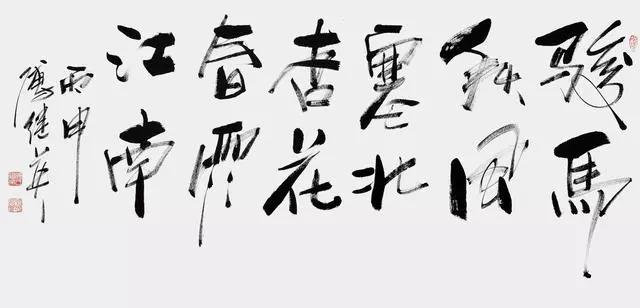 駿馬
秋風
塞北
杏花
春雨
江南
丙申
傅继英